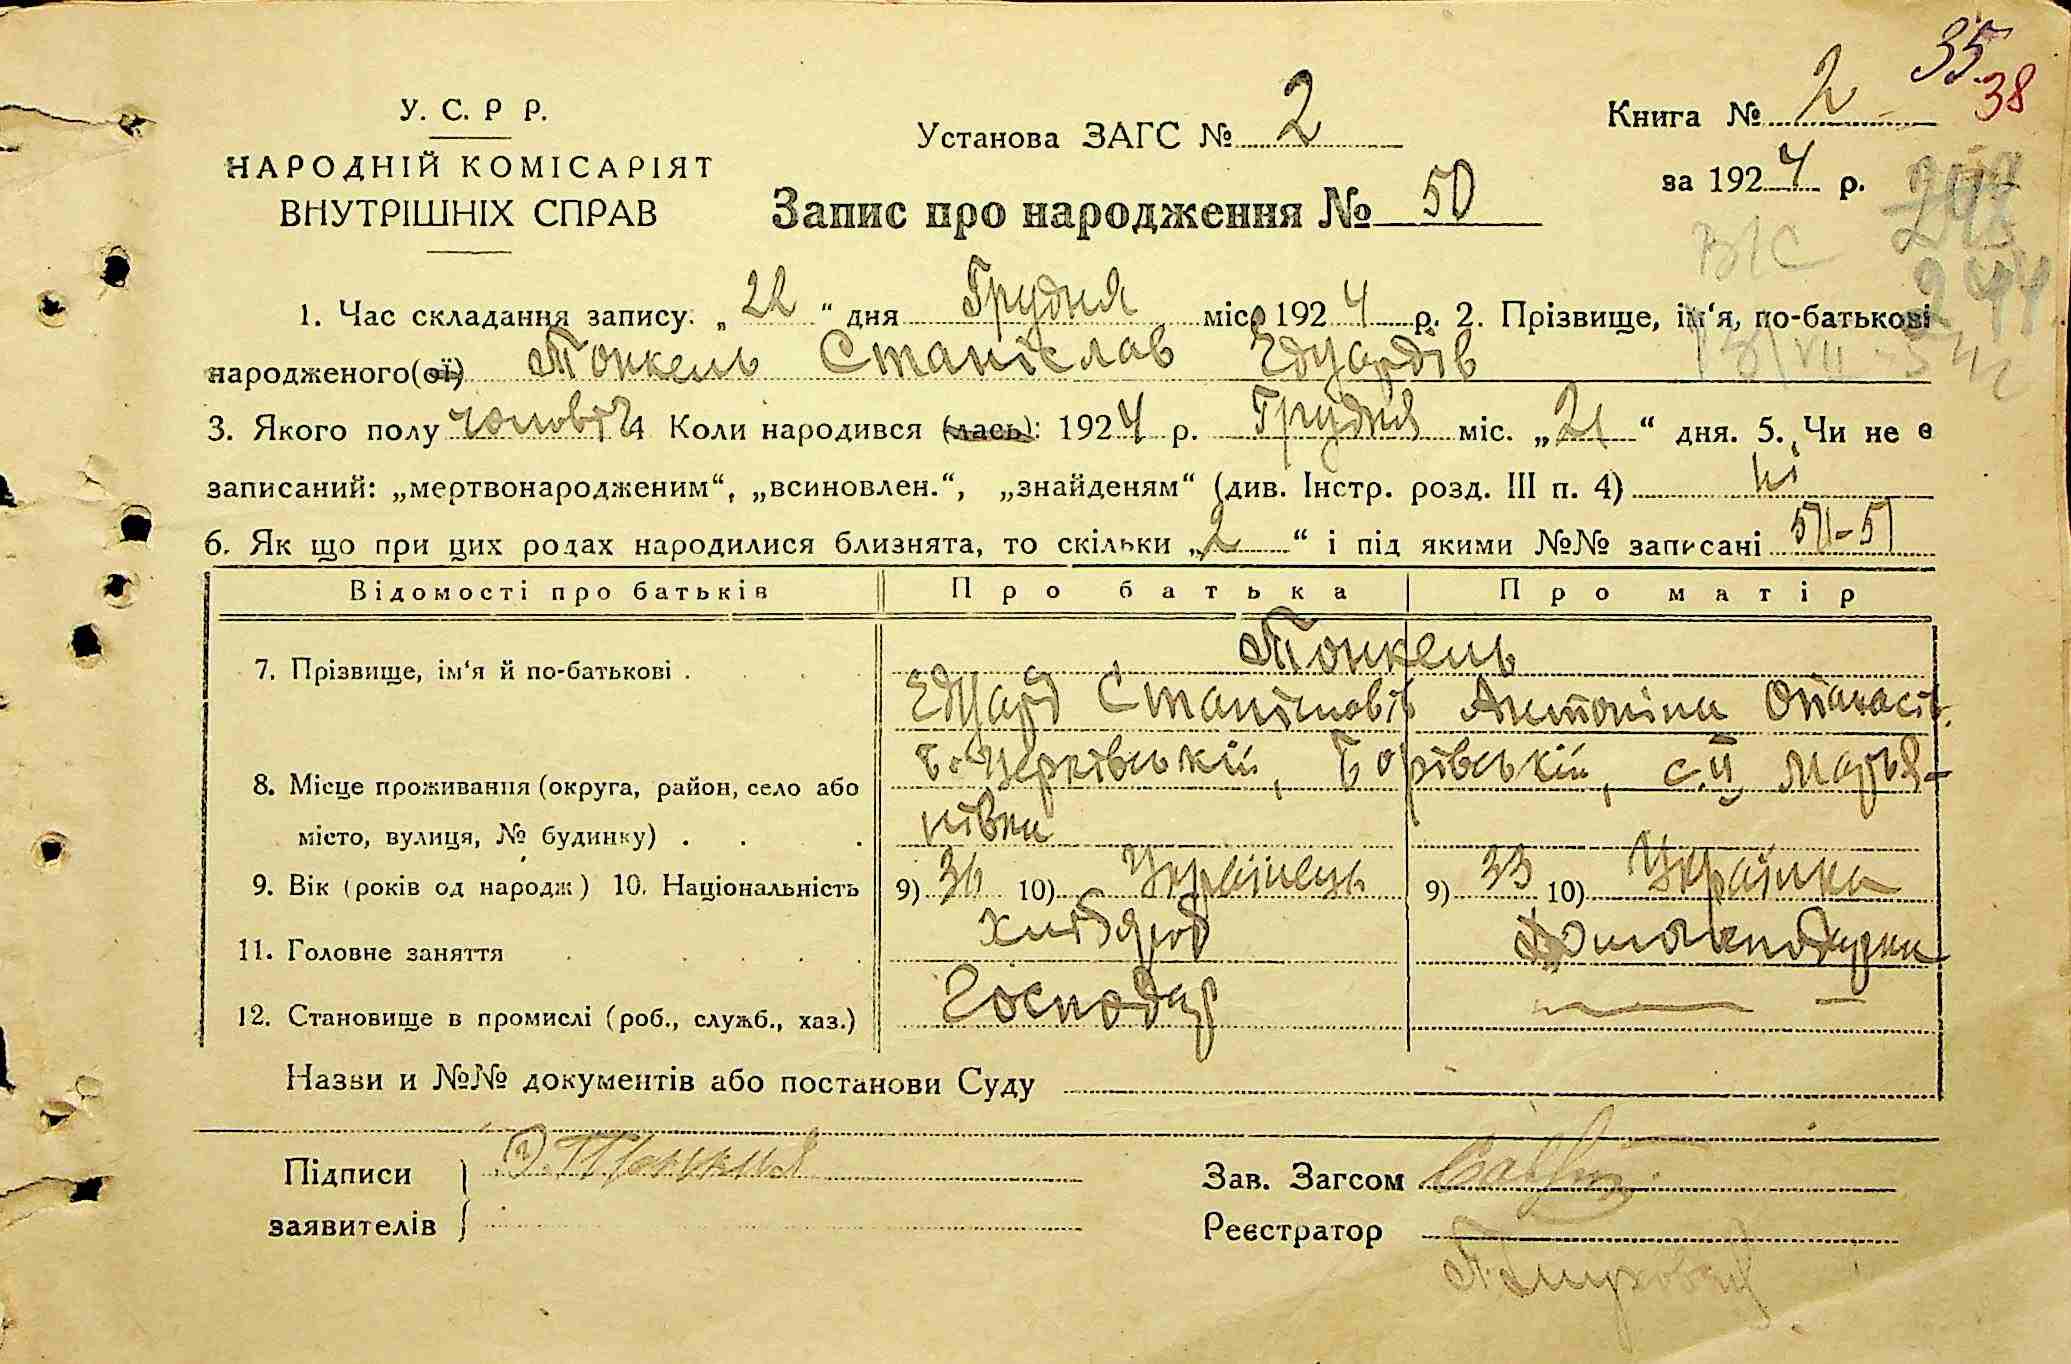 35
38
У. С. Р Р.
НАРОДНІЙ КОМІСАРІЯТ
ВНУТРІШНІХ СПРАВ
Установа ЗАГС № 2
Книга № 2
за 1924 р.
Запис про народження № 50
В/С
244
1. Час складання запису. „22“ дня Грудня міс. 1924 р. 2. Прізвище, ім‘я, по-батькові
народженого(ої) Тонкель Станіслав Едуардів
3. Якого полу чоловіч 4 Коли народився (лась): 1924 р. Грудня міс. „21“ дня. 5. Чи не є
записаний: „мертвонародженим“, „всиновлен.“, „знайденям“ (див. Інстр. розд. III п. 4) ні
6. Як що при цих родах народилися близнята, то скільки „2“ і під якими №№ записані 50-51
Відомості про батьків Про батька Про матір
7. Прізвище, ім‘я й по-батькові . Тонкель
Едуард Станіславів Антоніна Опанасів.
8. Місце проживання (округа, район, село або Б-Церківській, Борівській, с. Мар'я-
місто, вулиця, № будинку) . нівка
9. Вік (років од народж) 10. Національність 9) 36 10) Українець 9) 33 10) Українка
11. Головне заняття хлібороб Домогосподарка
12. Становище в промислі (роб., служб., хаз.) Господар —
Назви и №№ документів або постанови Суду
Підписи Э. Тонкель
заявителів
Зав. Загсом
Реєстратор